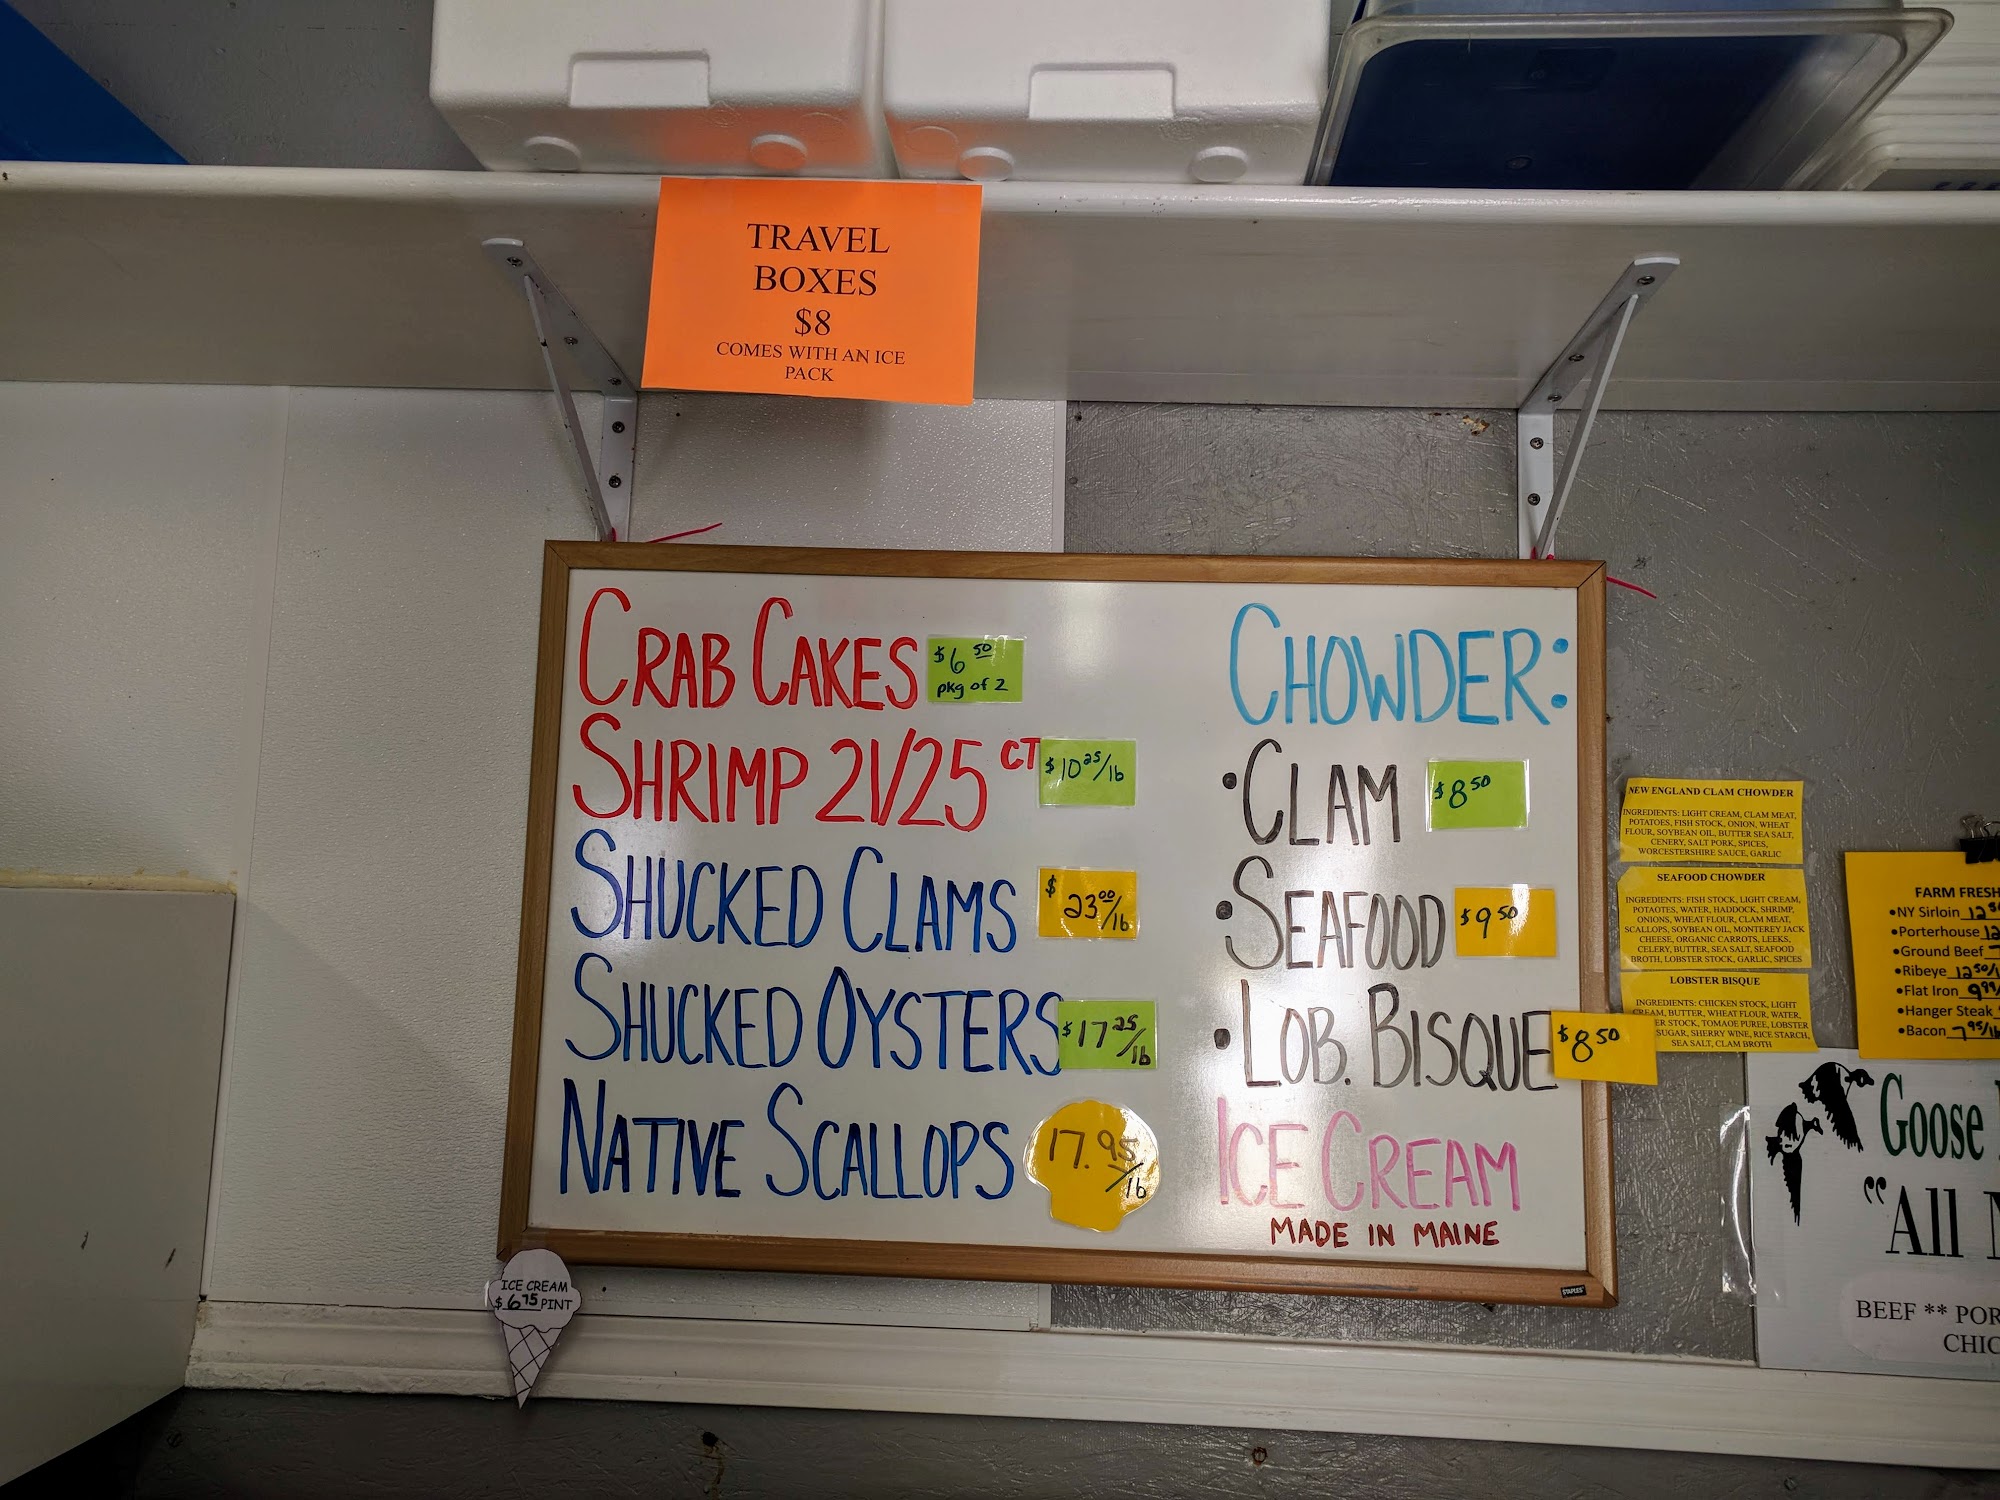 TRAVEL
BOXES
$8
COMES WITH AN ICE
PACK
CRAB CAKES $6 50
pkg of 2
SHRIMP 21/25 CT $10 25/lb
SHUCKED CLAMS $23 00/lb
SHUCKED OYSTERS $17 25/lb
NATIVE SCALLOPS 17.95/lb
CHOWDER:
• CLAM $8 50
• SEAFOOD $9 50
• LOB. BISQUE $8 50
ICE CREAM
MADE IN MAINE
STAPLES
ICE CREAM
$6 75 PINT
NEW ENGLAND CLAM CHOWDER
INGREDIENTS: LIGHT CREAM, CLAM MEAT,
POTATOES, FISH STOCK, ONION, WHEAT
FLOUR, SOYBEAN OIL, BUTTER SEA SALT,
CENERY, SALT PORK, SPICES,
WORCESTERSHIRE SAUCE, GARLIC
SEAFOOD CHOWDER
INGREDIENTS: FISH STOCK, LIGHT CREAM,
POTAOTES, WATER, HADDOCK, SHRIMP,
ONIONS, WHEAT FLOUR, CLAM MEAT,
SCALLOPS, SOYBEAN OIL, MONTEREY JACK
CHEESE, ORGANIC CARROTS, LEEKS,
CELERY, BUTTER, SEA SALT, SEAFOOD
BROTH, LOBSTER STOCK, GARLIC, SPICES
LOBSTER BISQUE
INGREDIENTS: CHICKEN STOCK, LIGHT
CREAM, BUTTER, WHEAT FLOUR, WATER,
STOCK, TOMAOE PUREE, LOBSTER
SUGAR, SHERRY WINE, RICE STARCH,
SEA SALT, CLAM BROTH
FARM FRESH
•NY Sirloin
•Porterhouse
•Ground Beef
•Ribeye 12 50/
•Flat Iron 9 99/
•Hanger Steak
•Bacon 7 95/lb
Goose
"All
BEEF **